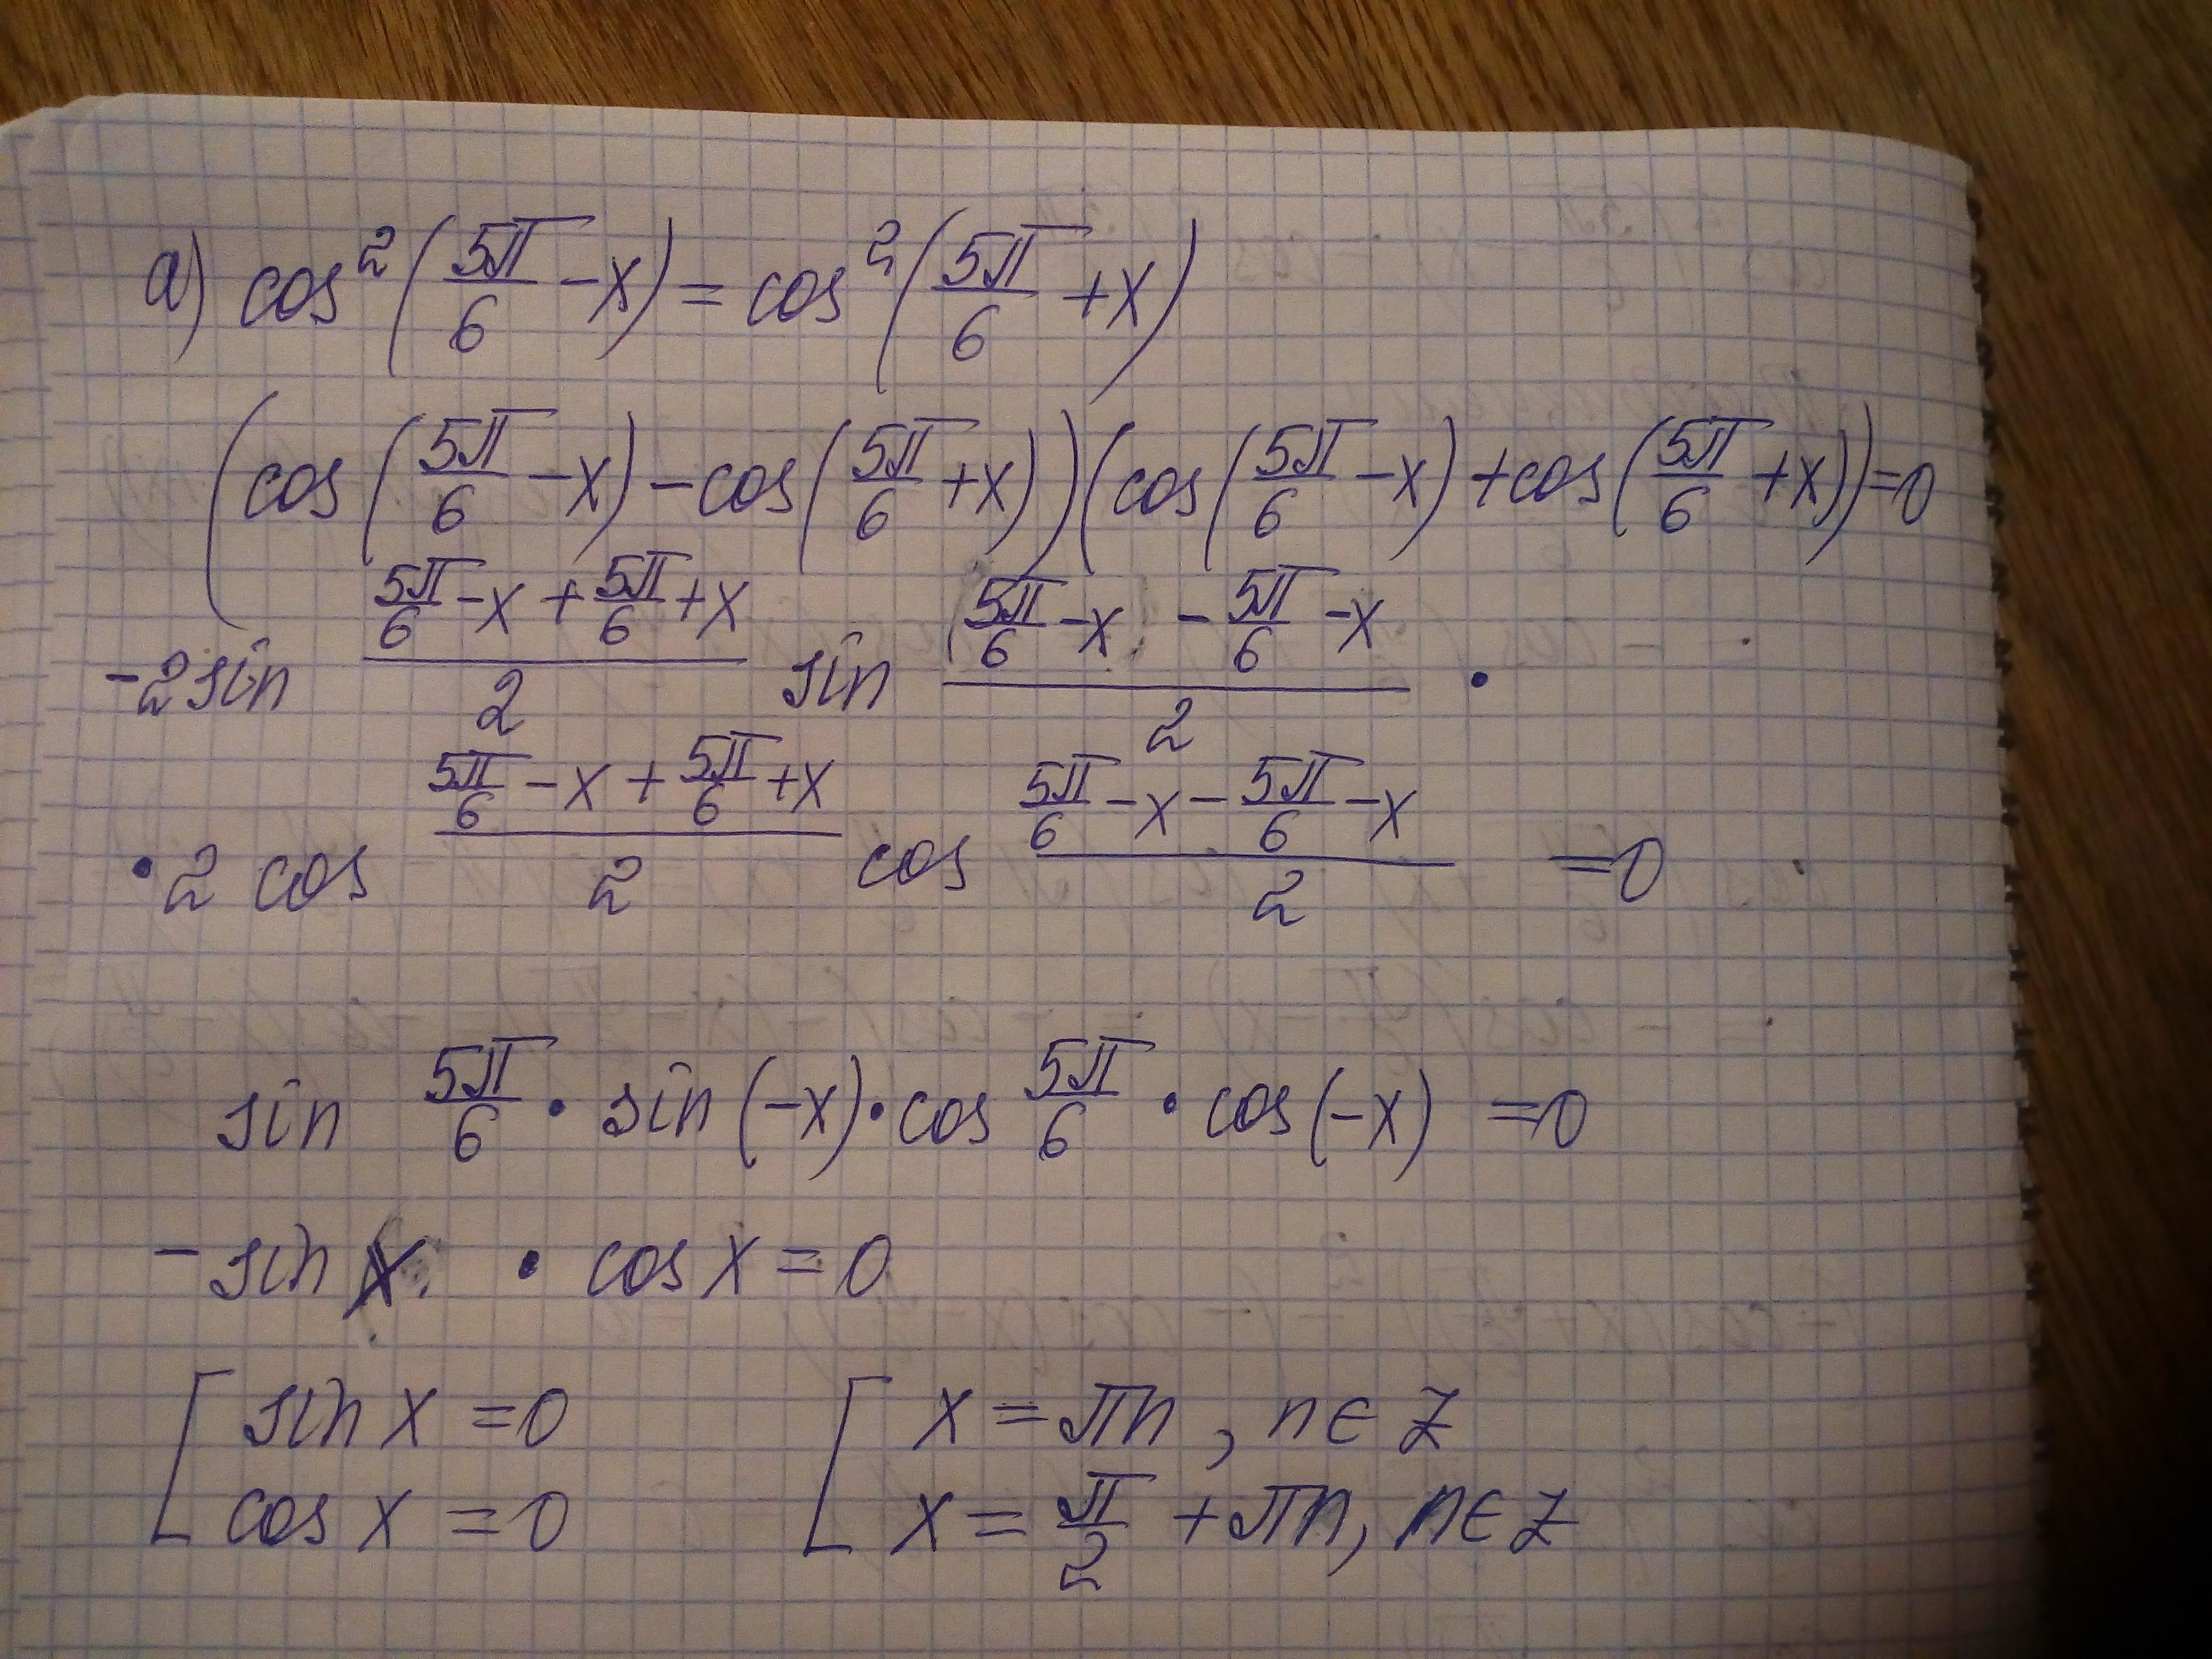 а) cos²(5π/6 - x) = cos²(5π/6 + x)
(cos(5π/6 - x) - cos(5π/6 + x))(cos(5π/6 - x) + cos(5π/6 + x)) = 0
-2 sin (5π/6 - x + 5π/6 + x)/2 sin (5π/6 - x - 5π/6 - x)/2 ·
· 2 cos (5π/6 - x + 5π/6 + x)/2 cos (5π/6 - x - 5π/6 - x)/2 = 0
sin 5π/6 · sin(-x) · cos 5π/6 · cos(-x) = 0
- sin x · cos x = 0
[ sin x = 0 [ x = πn, n ∈ Z
cos x = 0 x = π/2 + πn, n ∈ Z